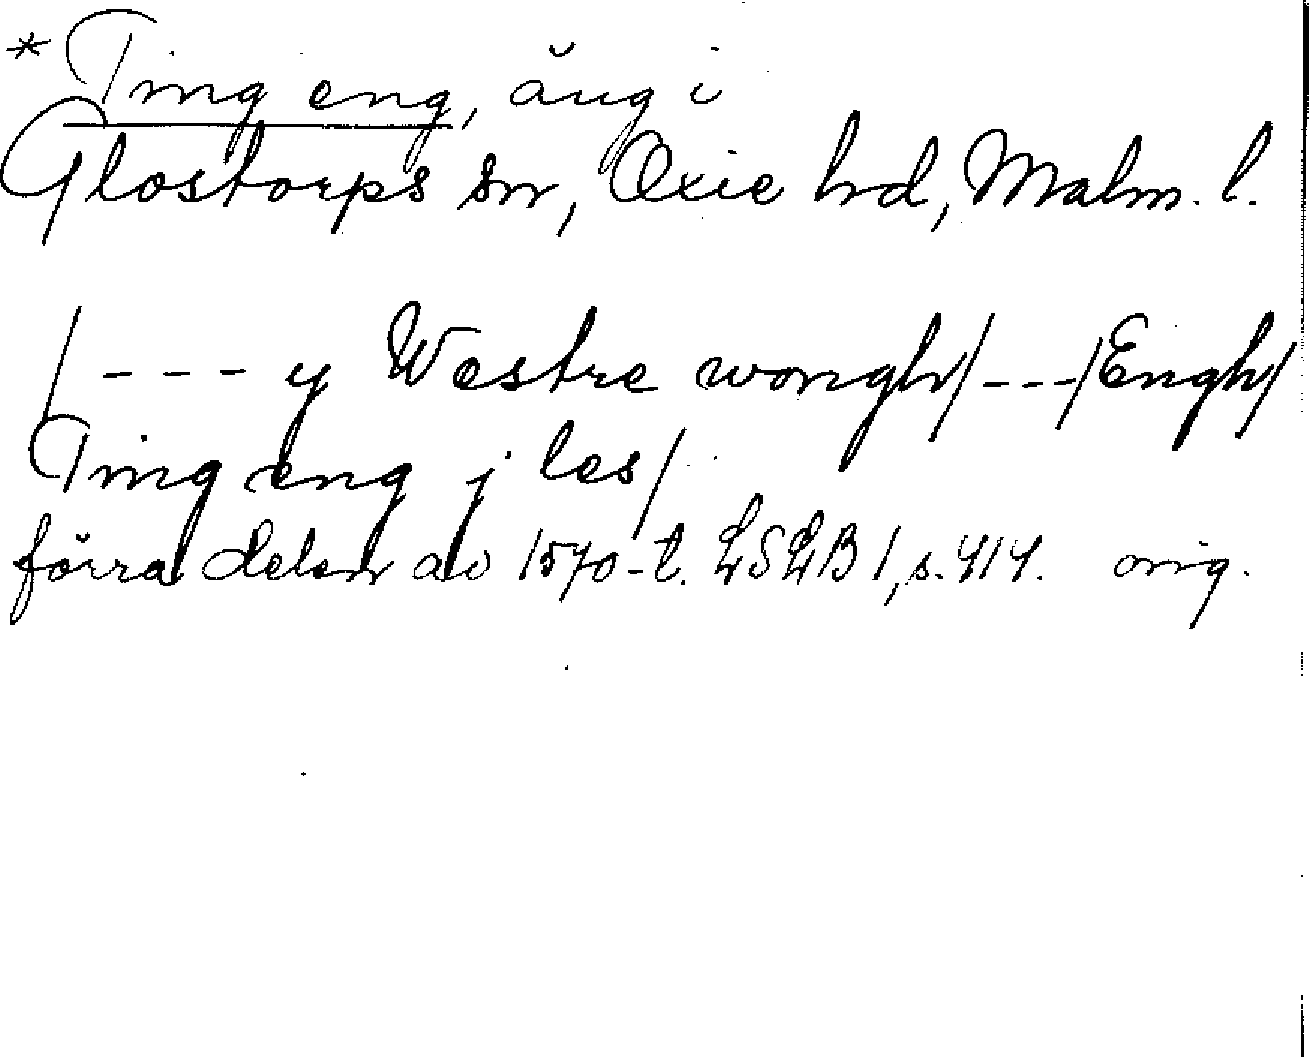 * Ting eng, äng i
Glostorps sn, Oxie hrd, Malm. l.
/--- y Westre wongh/---/Engh/
Ting eng j les/
förra delen av 1570-t. LSLB 1, s. 414. orig.